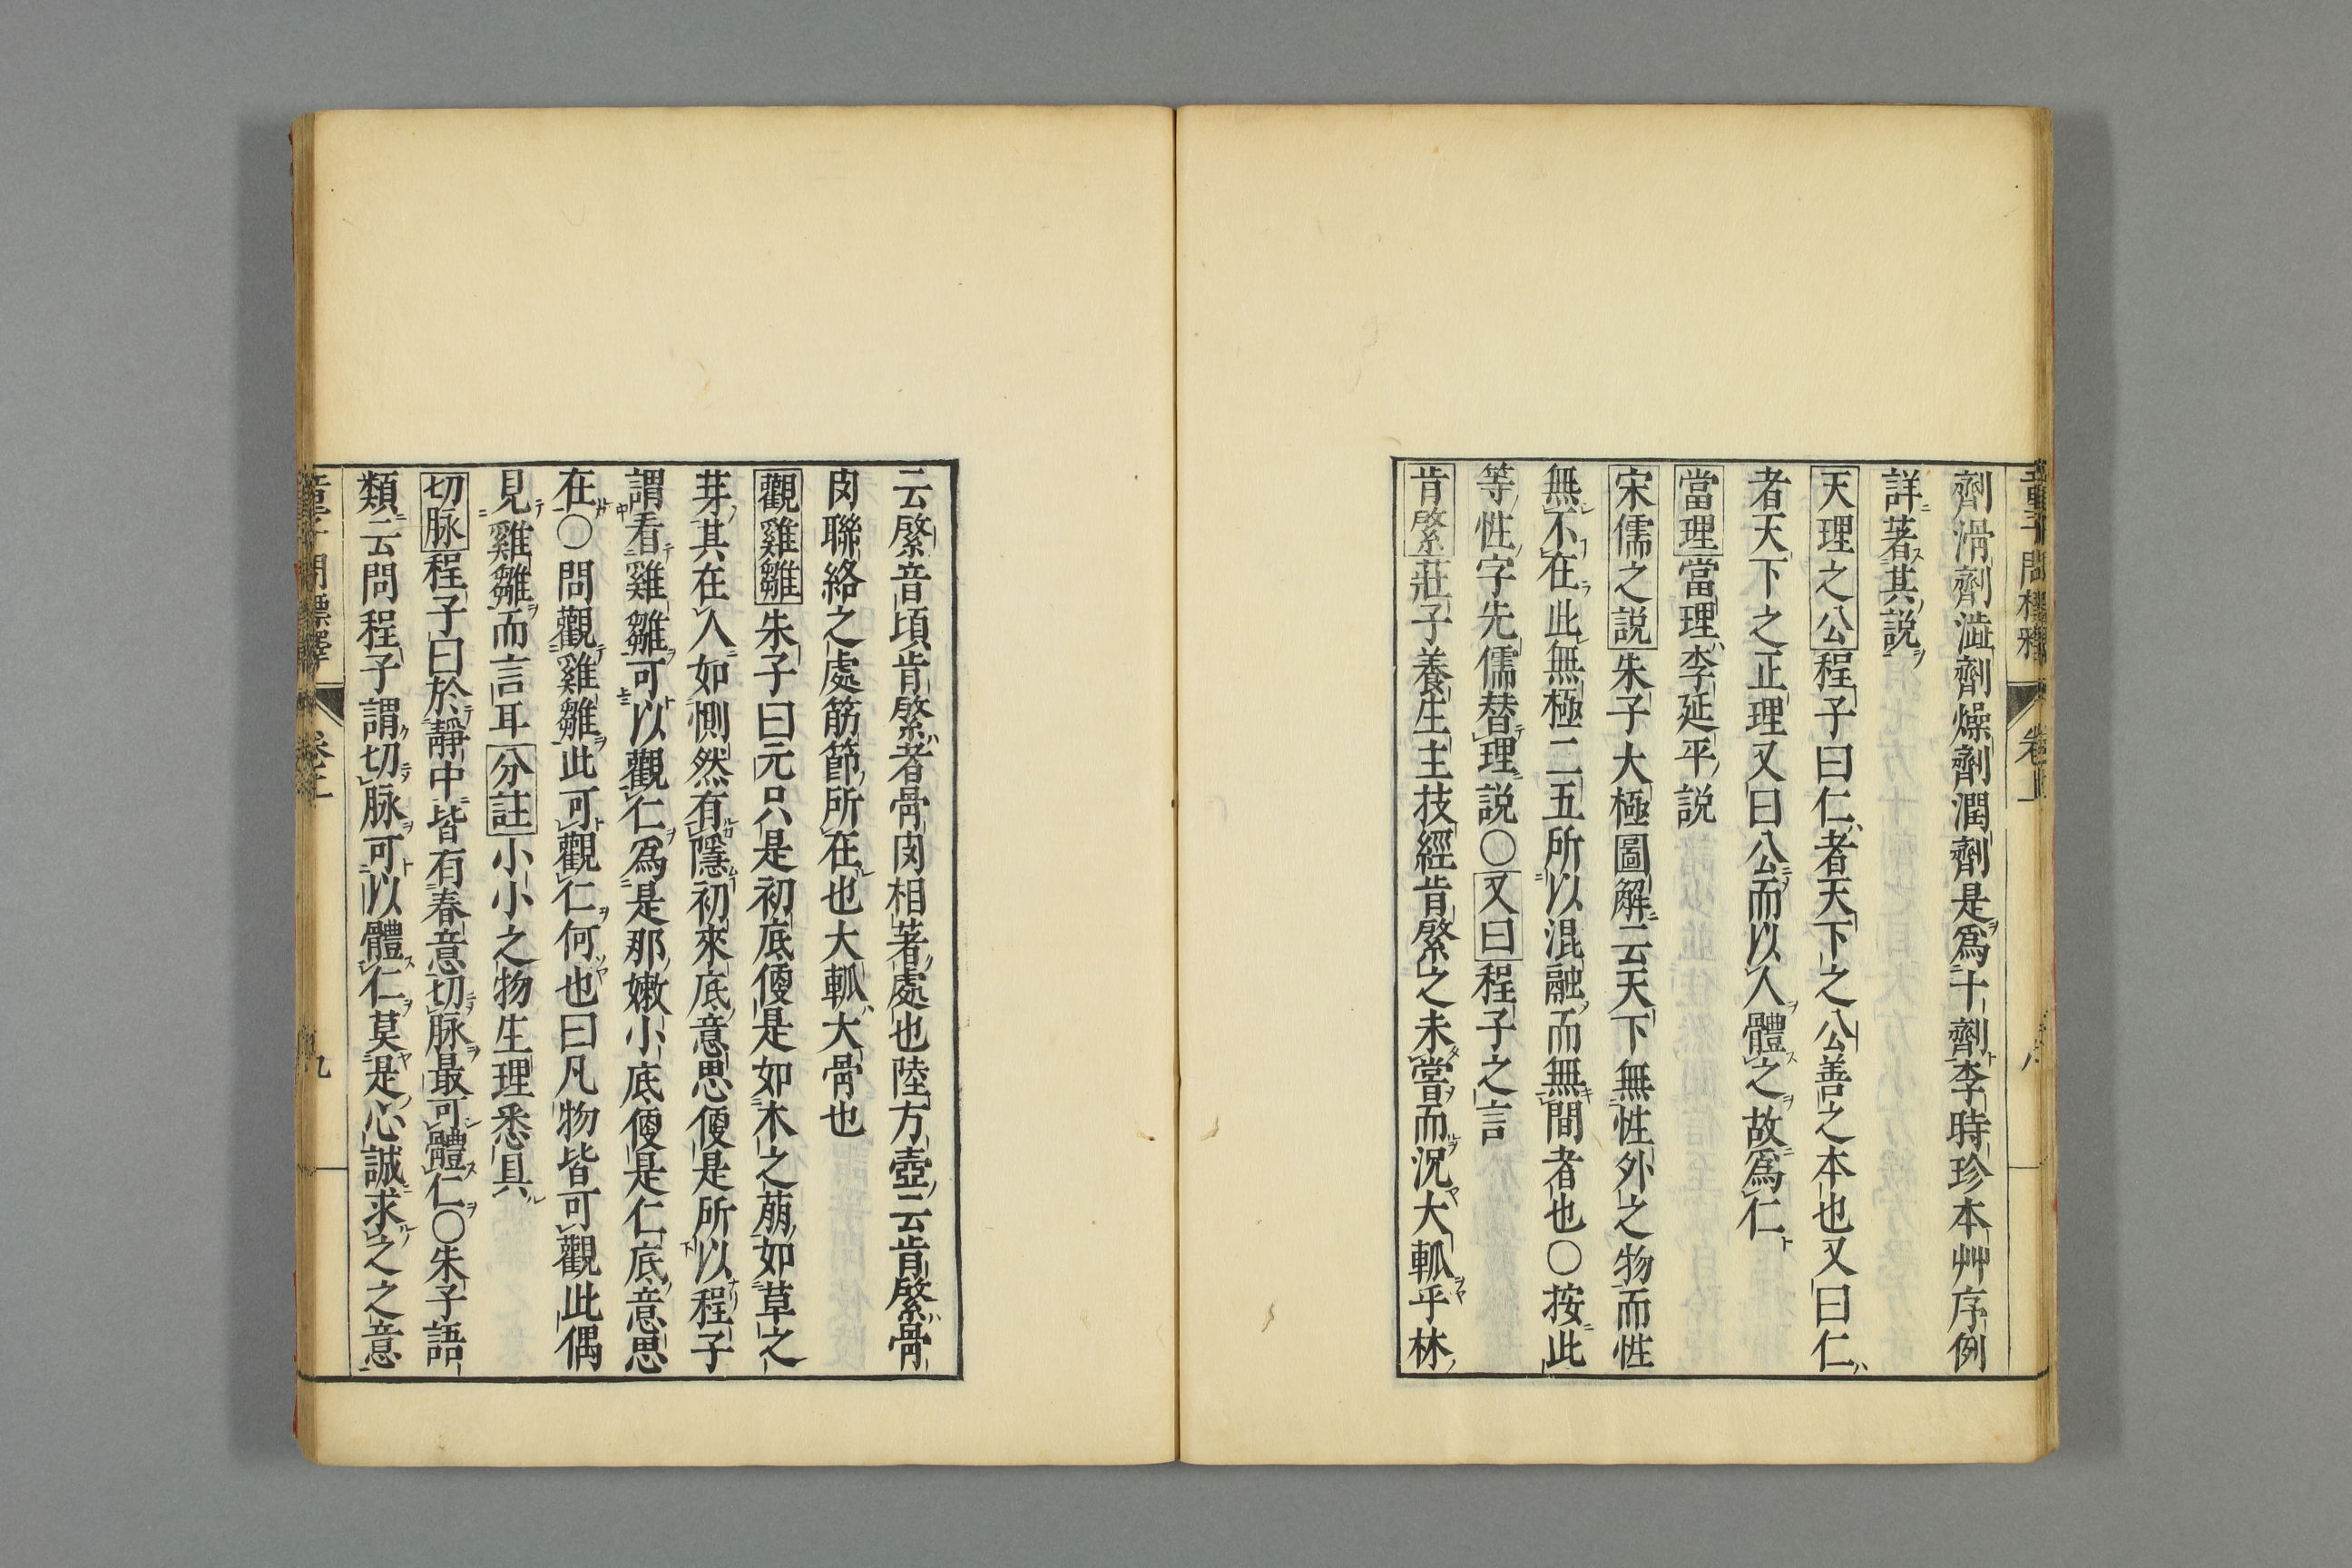 劑滑劑澁劑燥劑潤劑是爲十劑李時珍本艸序例
詳著其説
天理之公程子曰仁者天下之公善之本也又曰仁
者天下之正理又曰公而以人體之故爲仁
當理當理李延平説
宋儒之説朱子大極圖解云天下無性外之物而性
無不在此無極二五所以混融而無間者也〇按此
等性字先儒替理説〇又曰程子之言
肯綮莊子養生主技經肯綮之未嘗而況大軱乎林
云綮音頃肯綮者骨肉相著處也陸方壺云肯綮骨
肉聯絡之處筋節所在也大軱大骨也
觀雞雛朱子曰元只是初底便是如木之萠如草之
芽其在人如惻然有隱初來底意思便是所以程子
謂看雞雛可以觀仁爲是那嫩小底便是仁底意思
在〇問觀雞雛此可觀仁何也曰凡物皆可觀此偶
見雞雛而言耳分註小小之物生理悉具
切脉程子曰於靜中皆有春意切脉最可體仁〇朱子語
類云問程子謂切脉可以體仁莫是心誠求之之意
童子問標釋 卷上 九